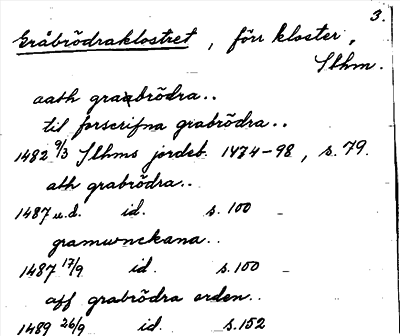 3.
Gråbrödraklostret, förr kloster,
Sthm.
aath graabrödra..
til forscrifna grabrödra..
1482 9/3 Sthms jordeb. 1474-98, s. 79.
ath grabrödra..
1487 u.d. id. s. 100 -
gramwnckana..
1487 17/9 id. s. 100 -
aff grabrödra orden..
1489 26/9 id. s. 152